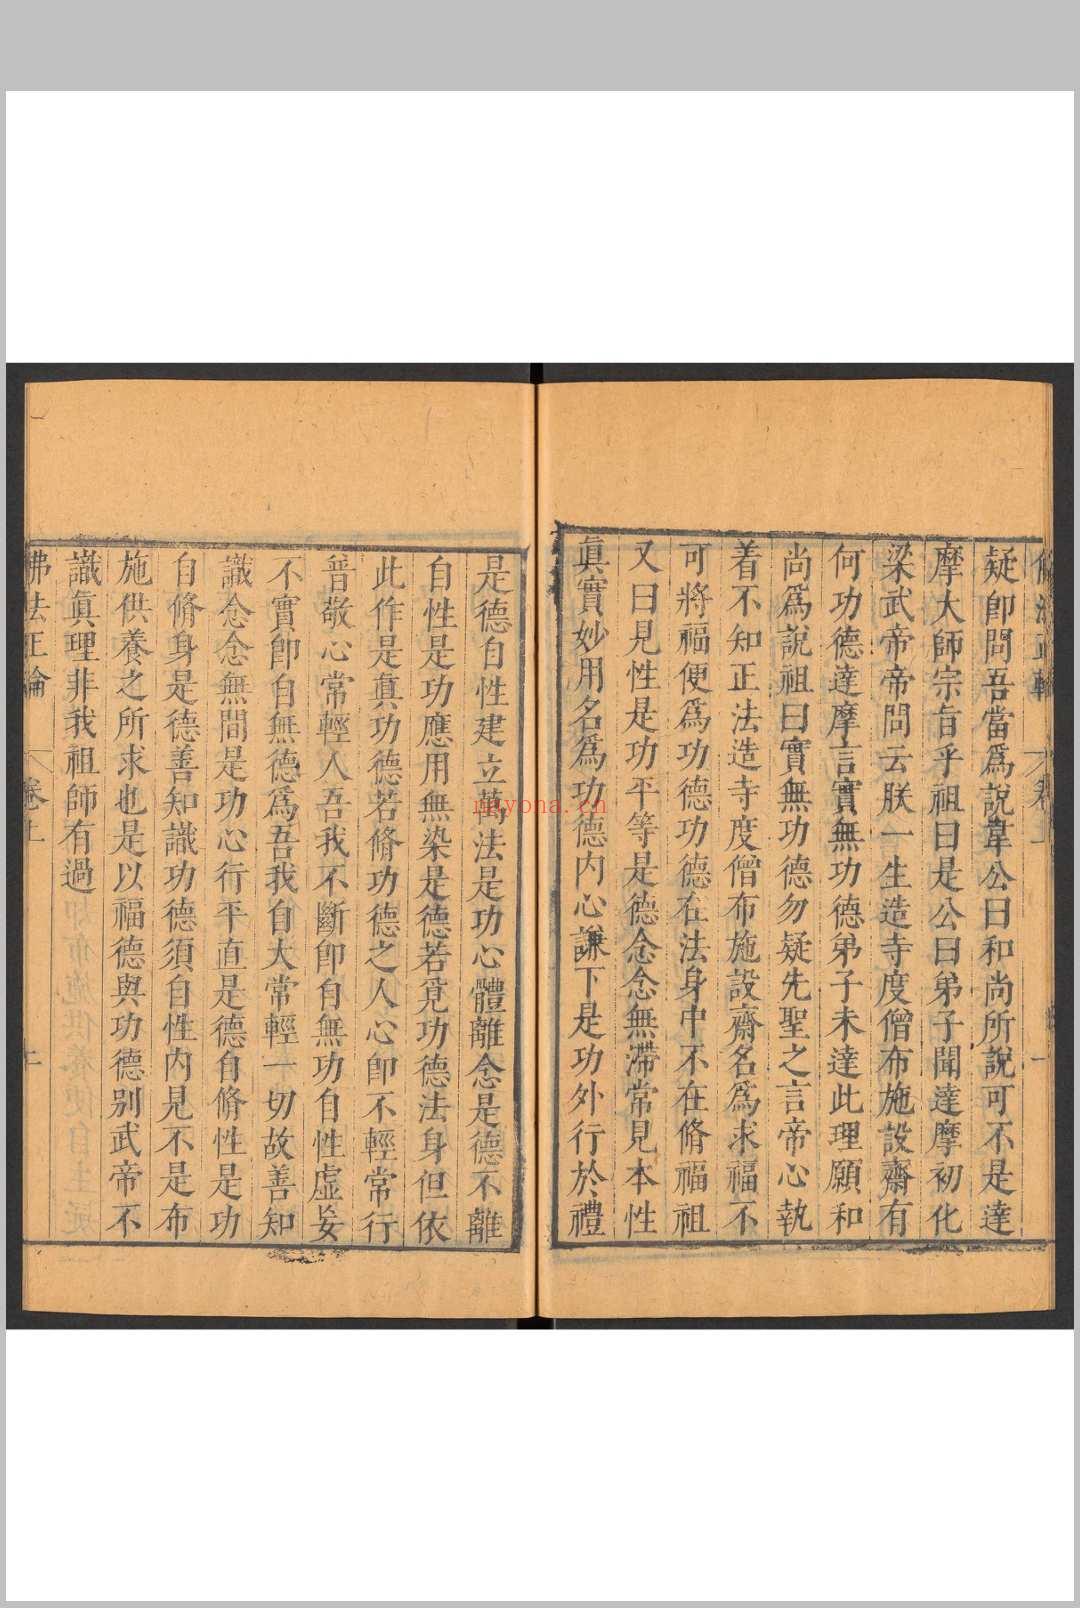 疑卽問吾當爲說韋公曰和尚所說可不是達
摩大師宗旨乎祖曰是公曰弟子聞達摩初化
梁武帝帝問云朕一生造寺度僧布施設齋有
何功德達摩言實無功德弟子未達此理願和
尚爲說祖曰實無功德勿疑先聖之言帝心執
着不知正法造寺度僧布施設齋名爲求福不
可將福便爲功德功德在法身中不在脩福祖
又曰見性是功平等是德念念無滯常見本性
眞實妙用名爲功德內心謙下是功外行於禮
是德自性建立萬法是功心體離念是德不離
自性是功應用無染是德若覓功德法身但依
此作是眞功德若脩功德之人心卽不輕常行
普敬心常輕人吾我不斷卽自無功自性虛妄
不實卽自無德爲吾我自大常輕一切故善知
識念念無間是功心行平直是德自脩性是功
自脩身是德善知識功德須自性內見不是布
施供養之所求也是以福德與功德别武帝不
識眞理非我祖師有過
佛法正論 卷上
nayona.cn